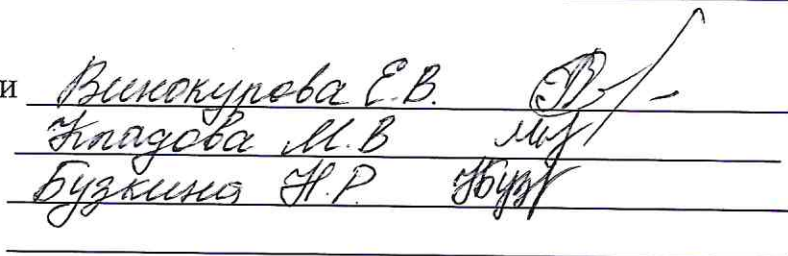 и Винокурова Е.В.
Кладова М.В
Бузкина Н.Р.